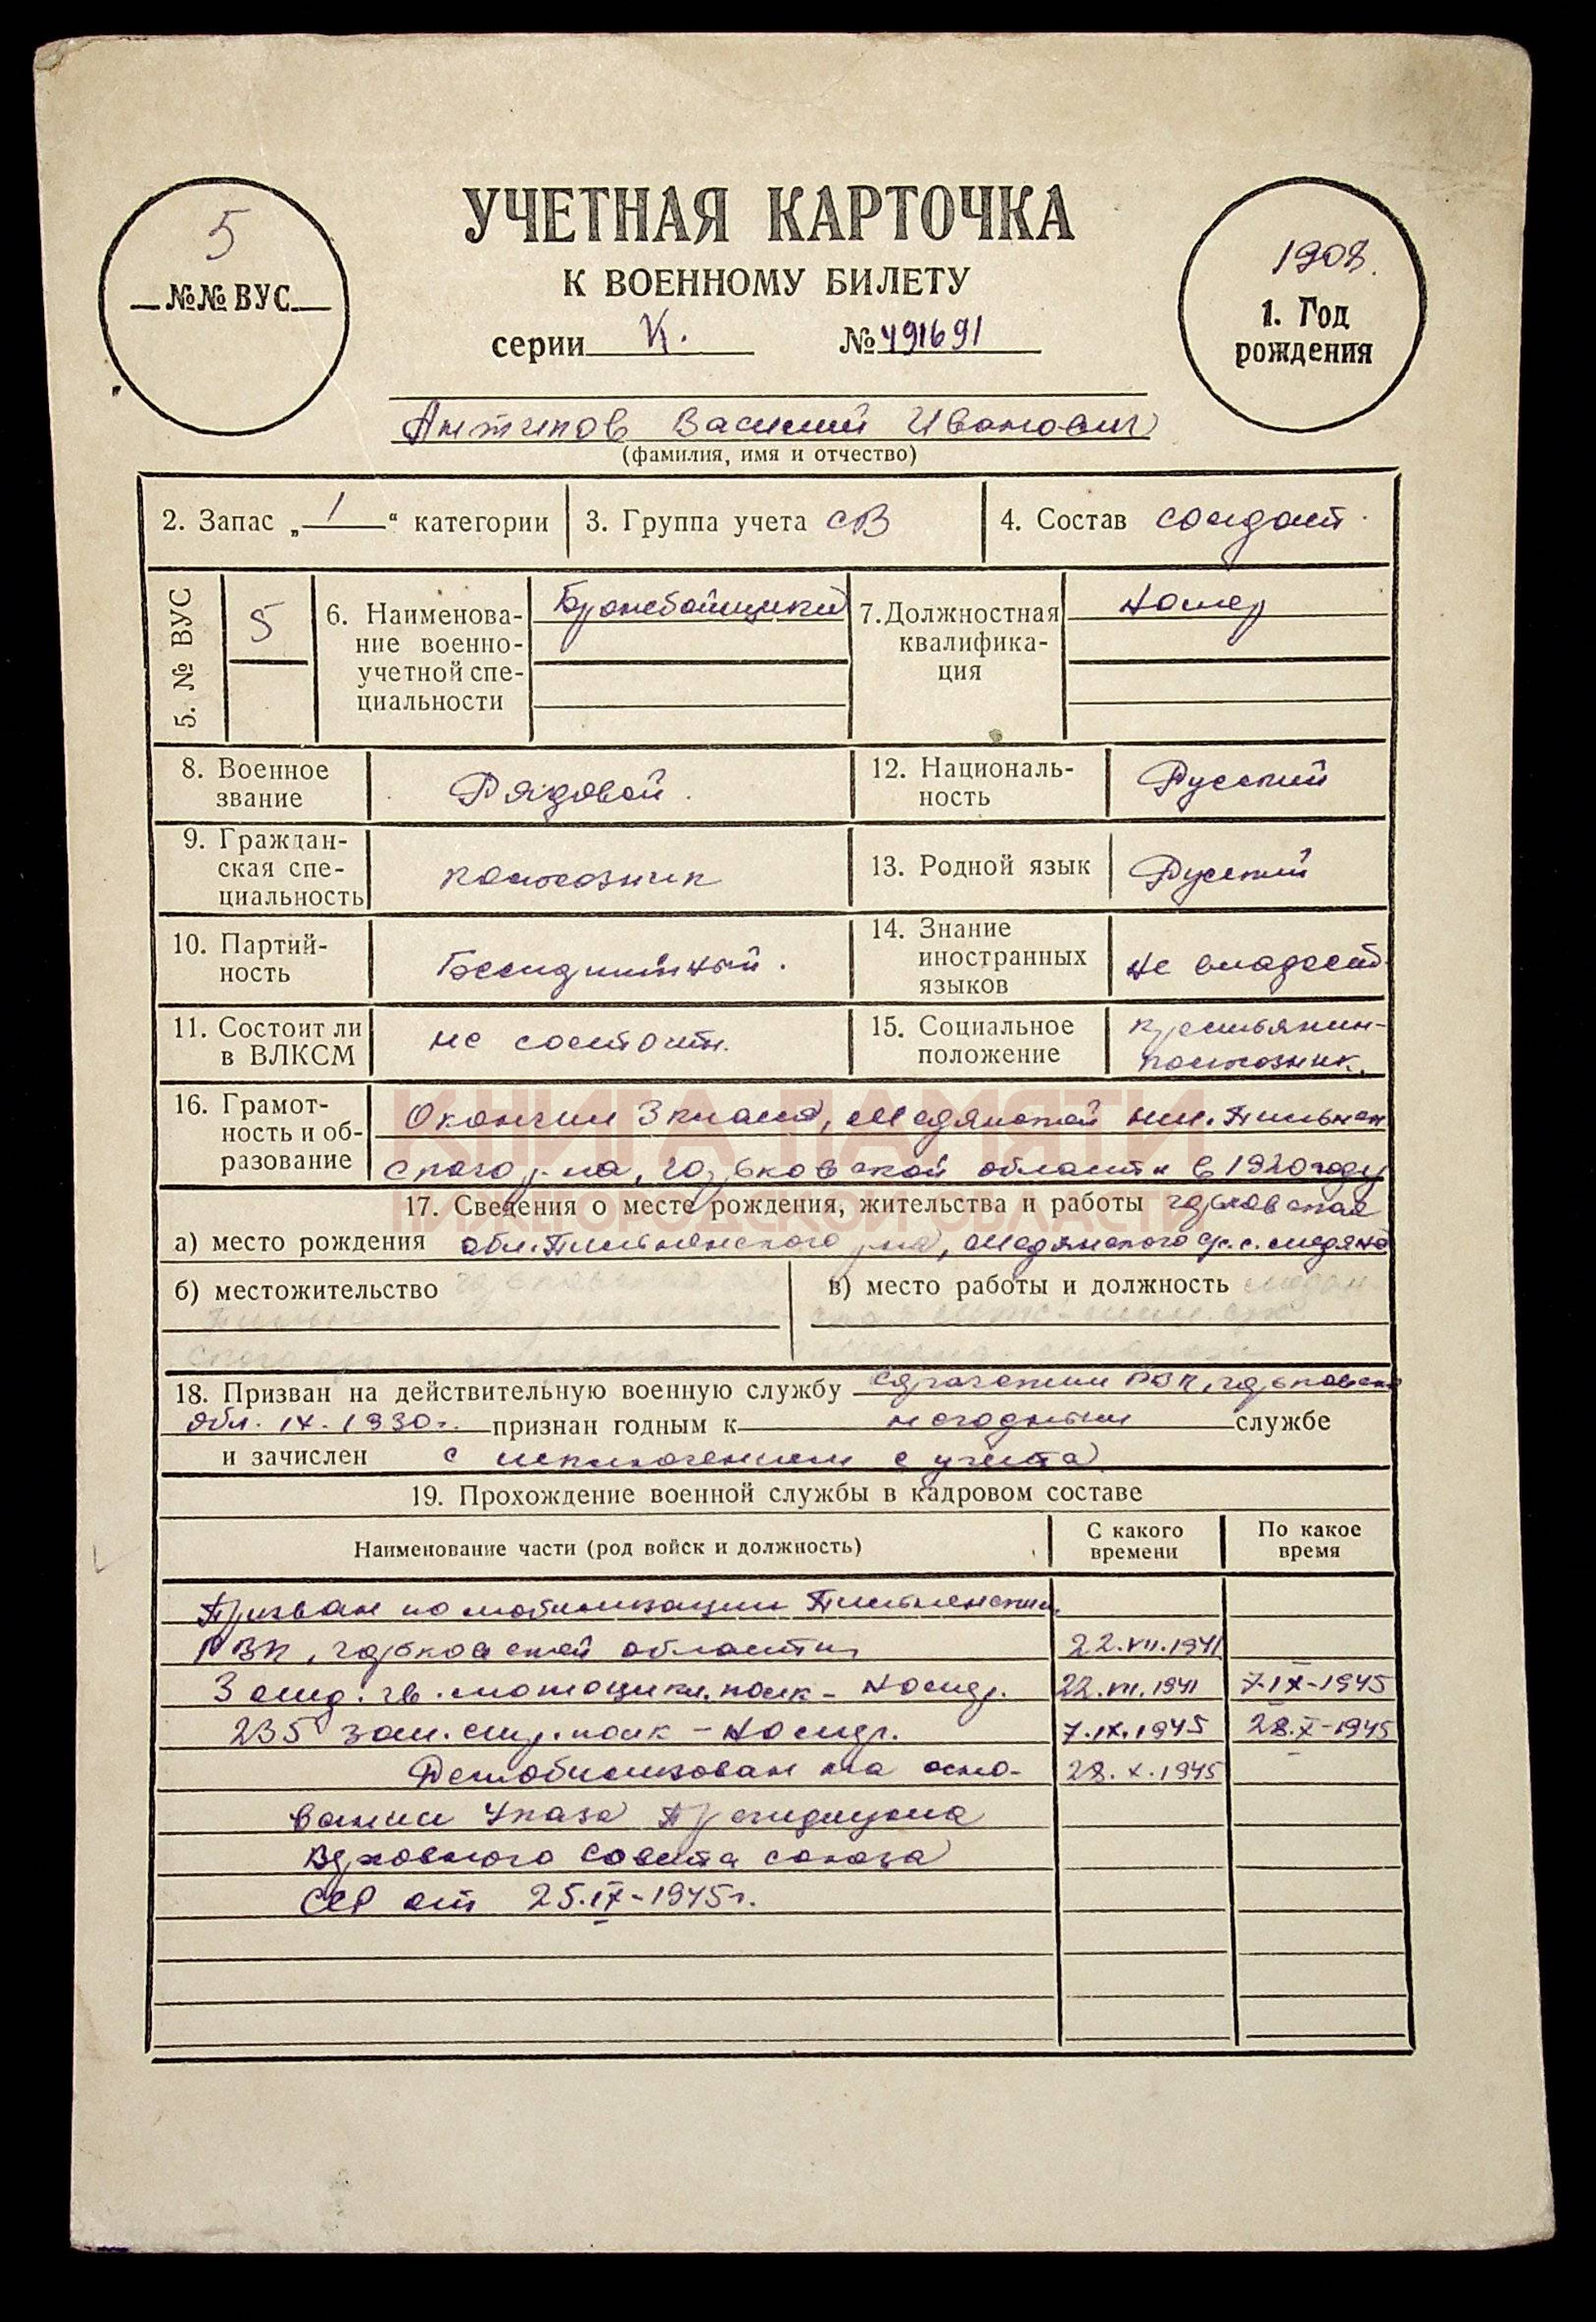 УЧЕТНАЯ КАРТОЧКА
К ВОЕННОМУ БИЛЕТУ
серии К. № 491691
5
№№ ВУС
1908.
1. Год
рождения
Антипов Василий Иванович
(фамилия, имя и отчество)
2. Запас „ 1 “ категории
3. Группа учета СВ
4. Состав солдат
5. № ВУС
5
6. Наименова-
ние военно-
учетной спе-
циальности
Бронебойщики
7. Должностная
квалифика-
ция
Номер
8. Военное
звание
Рядовой.
12. Националь-
ность
Русский
9. Граждан-
ская спе-
циальность
колхозник
13. Родной язык
Русский
10. Партий-
ность
Беспартийный.
14. Знание
иностранных
языков
Не владеет
11. Состоит ли
в ВЛКСМ
не состоит.
15. Социальное
положение
крестьянин-
колхозник.
КНИГА ПАМЯТИ
НИЖЕГОРОДСКОЙ ОБЛАСТИ
16. Грамот-
ность и об-
разование
Окончил 3 класса, Медянской Пильнен
ского р-на, горьковской области в 1920 году
17. Сведения о месте рождения, жительства и работы горьковская
а) место рождения обл. Пильненского р-на, Медянского с. медяна
б) местожительство
в) место работы и должность
18. Призван на действительную военную службу РВК, горьковской
обл. IX. 1930 г. признан годным к негодным службе
и зачислен с исключением с учёта
19. Прохождение военной службы в кадровом составе
Наименование части (род войск и должность)
С какого
времени
По какое
время
Призван по мобилизации Пильненским
РВК, горьковской области 22.VII.1941
3 гв. мотоцикл. полк - 22.VII.1941 7-IX-1945
235 зап. стр. полк - 7.IX.1945 28.X-1945
Демобилизован на осно- 28.X.1945
вании Указа Президиума
Верховного Совета союза
ССР от 25.IX-1945г.